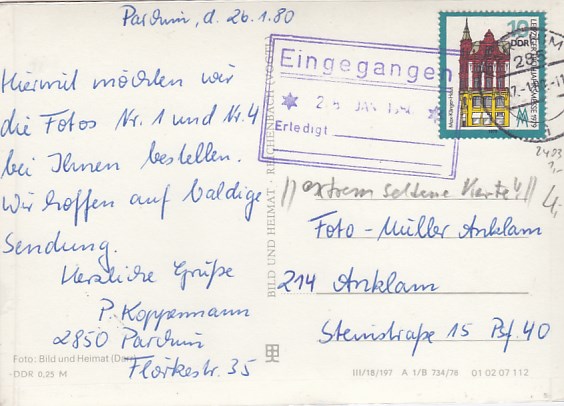 Parchim, d. 26.1.80
Hiermit möchten wir
die Fotos Nr. 1 und Nr. 4
bei Ihnen bestellen.
Wir hoffen auf baldige
Sendung.
Herzliche Grüße
P. Koppermann
2850 Parchim
Flörkestr. 35
Foto: Bild und Heimat
DDR 0,25 M
BILD UND HEIMAT · REICHENBACH (VOGTL)
Eingegangen
JAN. 1980
Erledigt
10
DDR
LEIPZIGER FRÜHJAHRSMESSE 1979
285
2403
1,-
4,-
//extrem seltene Karte!!//
Foto-Müller Anklam
214 Anklam
Steinstraße 15 Psf. 40
III/18/197 A 1/B 734/78 01 02 07 112